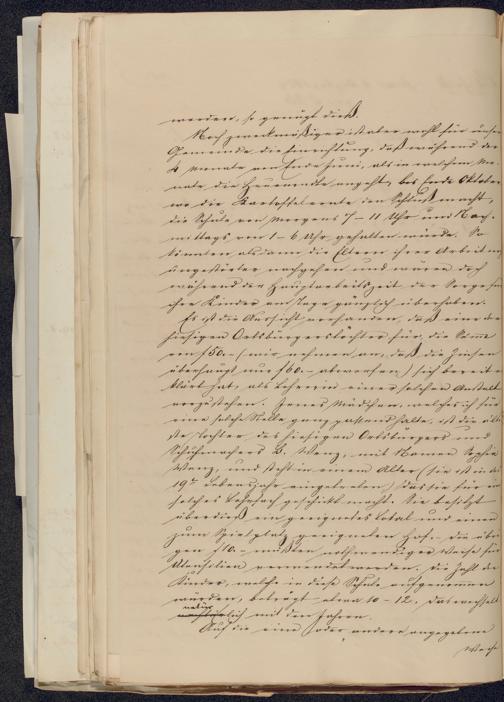 werden, so genügt dieß.
Noch zweckmäßiger ist aber wohl für unsre
Gemeinde die Einrichtung, daß während der
4 Monate von Ende Juni, als in welchem Mo-
nate die Heuernte angeht, bis Ende Oktober
wo die Kartoffelernte den Schluß macht,
die Schule von Morgens 7 – 11 Uhr und Nach-
mittags von 1 – 6 Uhr gehalten würde. So
könnten alsdann die Eltern ihrer Arbeit um
ungestörter nachgehen und wären doch
während der Hauptarbeitszeit der Sorge für
ihre Kinder am Tage gänzlich überhoben.
Es ist die Aussicht vorhanden, daß eine der
hiesigen Ortsbürgerstöchter für die Summe
von f 50.– (wir nehmen an, daß die Zinsen
überhaupt nur f 60.– abwerfen) sich bereit er-
klärt hat, als Lehrerin einer solchen Anstalt
vorzustehen. Jenes Mädchen, welches ich für
eine solche Stelle ganz passend halte, ist die älte-
ste Tochter des hiesigen Ortsbürgers und
Schuhmachers B. Wenz, mit Namen Sophie
Wenz, und steht in einem Alter (sie ist in das
19te Lebensjahr eingetreten) das sie für ein
solches Lehrfach geschickt macht. Sie besitzt
überdieß ein geeignetes Lokal und einen
zum Spielplatz geeigneten Hof. – Die übri-
gen f 10.– müßten nothwendiger Weise für
Utensilien verwendet werden. Die Zahl der
Kinder, welche in diese Schule aufgenommen
würden, beträgt etwa 10 – 12, das wechselt
natürlich mit den Jahren.
Auf die eine oder andere angegebene
Weise